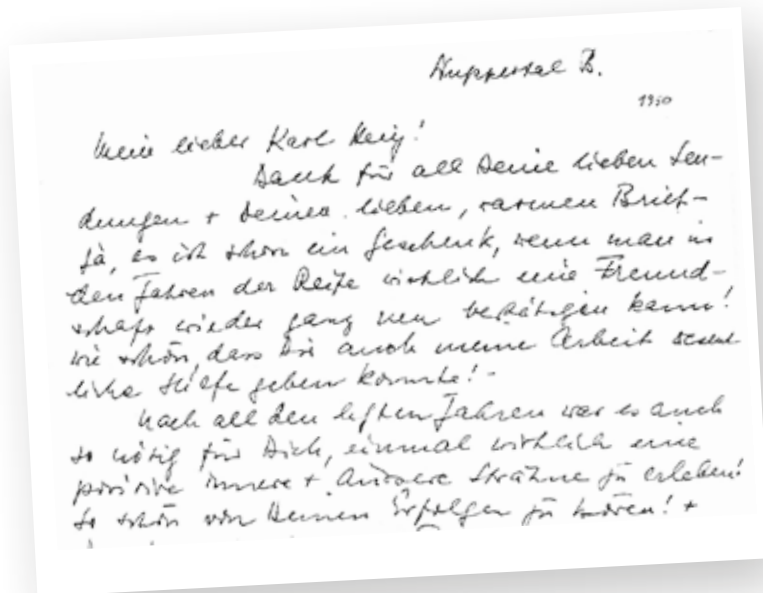 Wuppertal B.
1950
Mein lieber Karl
Dank für all Deine lieben Sen-
dungen + Deinen lieben, warmen Brief -
Ja, es ist schon ein Geschenk, wenn man in
den Jahren der Reife wirklich eine Freund-
schaft wieder ganz neu bestätigen kann!
Wie schön, dass Dir auch meine Arbeit wesent-
liche Hilfe geben konnte! -
Nach all den letzten Jahren war es auch
so nötig für Dich, einmal wirklich eine
positive innere + äussere Strähne zu erleben!
So schön von Deinen Erfolgen zu hören! +